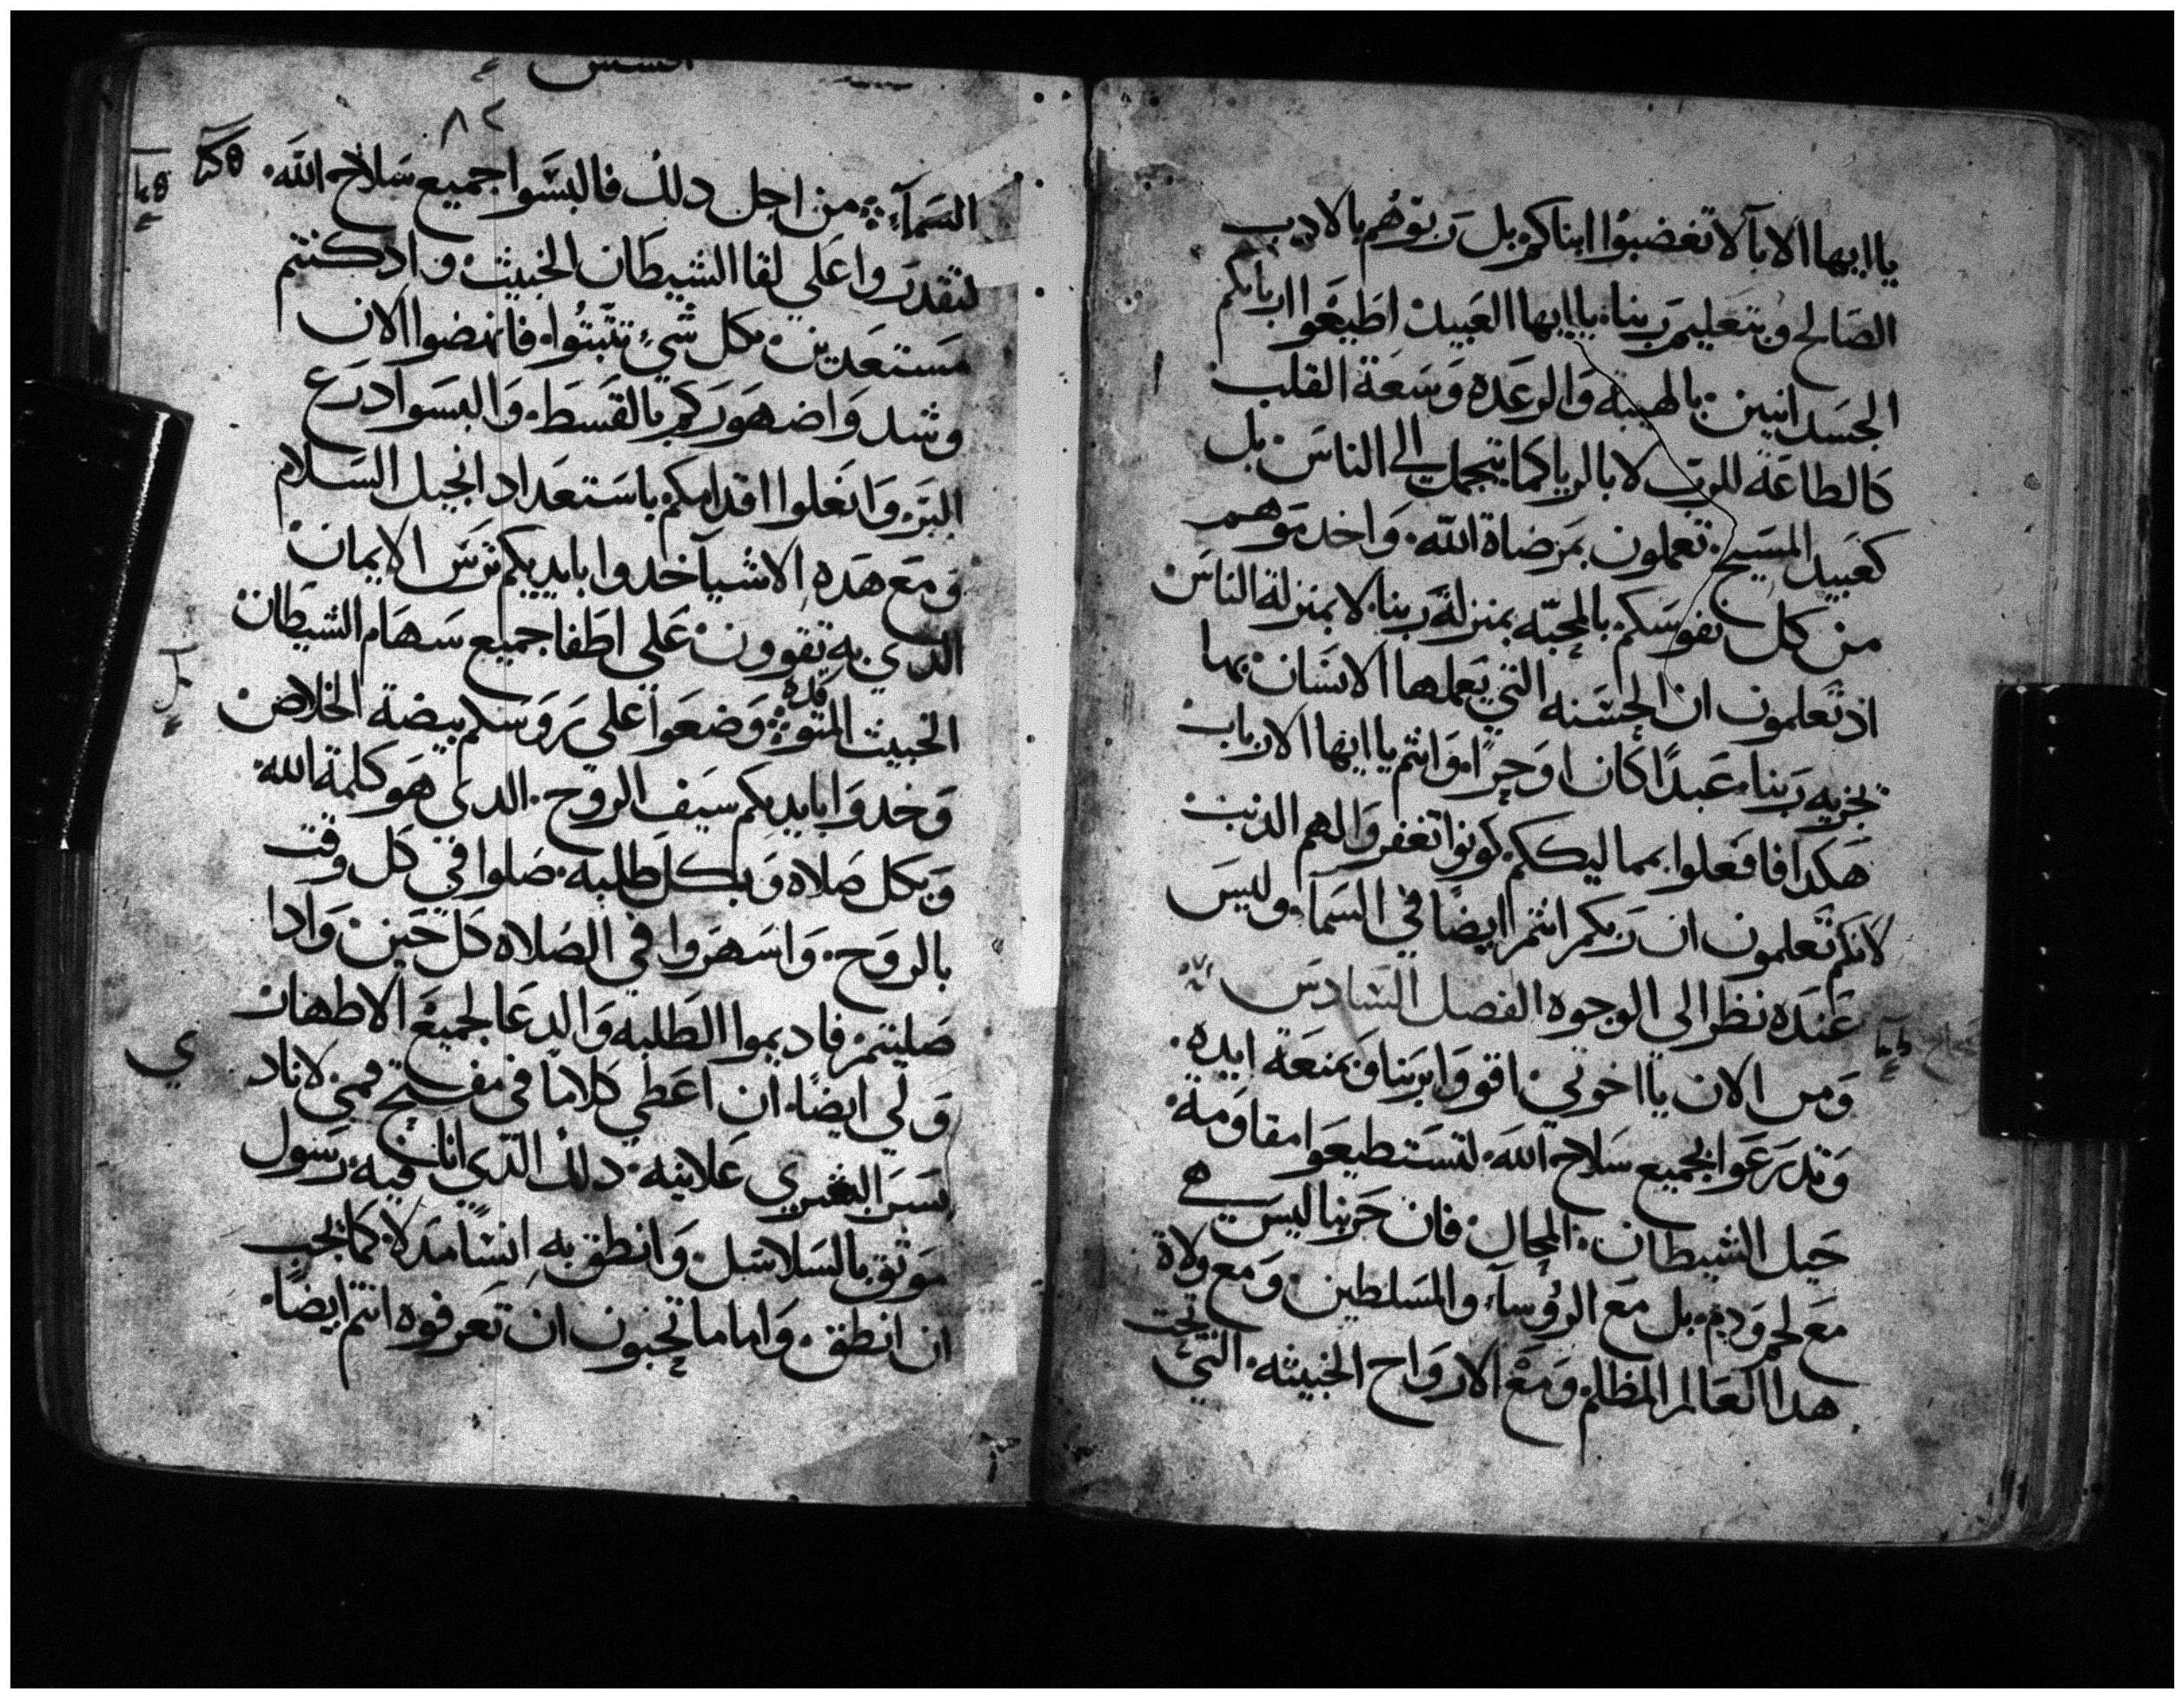 ياايها الابآ لا تغضبوا ابناكم بل ربوهم بالادب
الصالح وبتعليم ربنا ياايها العبيد اطيعوا اربابكم
الجسدانيين بالهيبة والرعده وسعة القلب
كالطاعة للرب لا بالريا كما يتجمل الى الناس بل
كعبيد المسيح تعملون بمرضاة الله واخدموهم
من كل نفوسكم بالمحبه بمنزلة ربنا لا بمنزلة الناس
اذ تعلمون ان الحسنه التي يعملها الانسان بها
يجزيه ربنا عبدًا كان او حرًا وانتم ياايها الارباب
هكدا فافعلوا بمماليككم كونوا تغفروا لهم الذنب
لانكم تعلمون ان ربكم انتم ايضًا في السمآ وليس
عنده نظر الى الوجوه الفصل السادس
ومن الان يااخوتي اقووا بربنا وبمنعة ايده
وتدرعوا بجميع سلاح الله لتستطيعوا مقاومة
حيل الشيطان المحال فان حربنا ليس هي
مع لحم ودم بل مع الرؤسآء والمسلطين ومع ولاة
هدا العالم المظلم ومع الارواح الخبيثه التي تحت
٨٢
السمآء من اجل دلك فالبسوا جميع سلاح الله
لتقدروا على لقا الشيطان الخبيث واد كنتم
مستعدين بكل شيء تثبتوا فانهضوا الان
وشدوا ضهوركم بالقسط والبسوا درع
البر وانعلوا اقدامكم باستعداد انجيل السلام
ومع هده الاشيآ خدوا بايديكم ترس الايمان
الدي به تقوون على اطفا جميع سهام الشيطان
الخبيث المتوقده وضعوا على روسكم بيضة الخلاص
وخدوا بايديكم سيف الروح الدى هو كلمة الله
وبكل صلاه وبكل طلبه صلوا في كل وقت
بالروح واسهروا في الصلاه كل حين وادا
صليتم فاديموا الطلبه والدعا لجميع الاطهار
ولي ايضًا ان اعطي كلامًا في مفتح فمي لانادي
بسر البشري علانيه دلك الدي انا فيه رسول
موثق بالسلاسل وانطق به انسا مدلا كما يجب
ان انطق واما ما تحبون ان تعرفوه انتم ايضًا